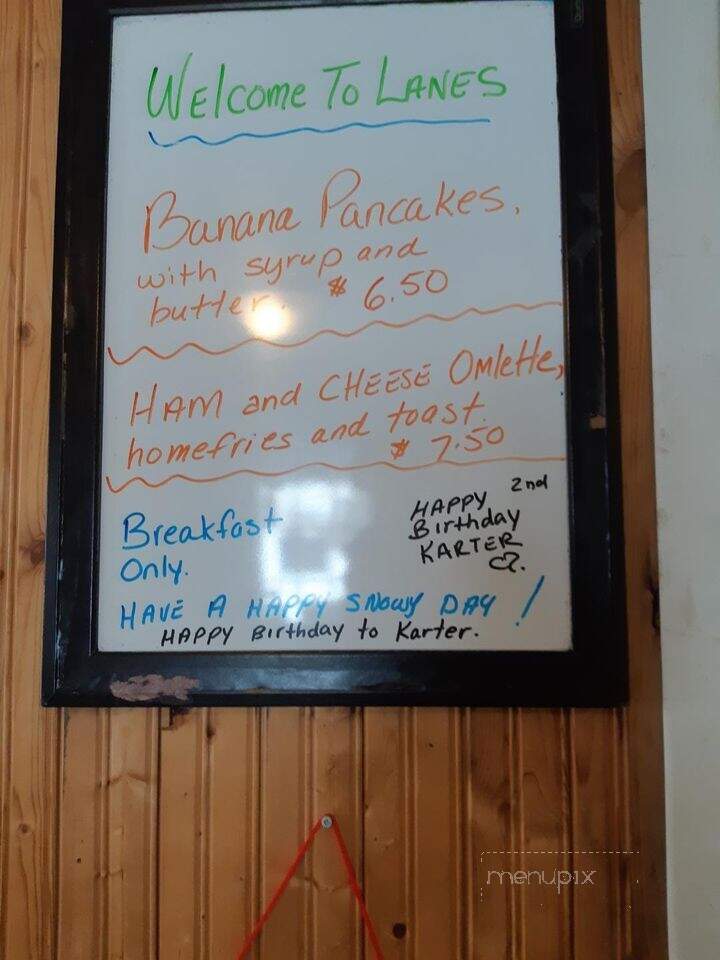 Welcome To LANES
Banana Pancakes,
with syrup and
butter. $ 6.50
HAM and CHEESE Omlette,
homefries and toast.
$ 7.50
Breakfast
Only.
2nd
HAPPY
Birthday
KARTER
HAVE A HAPPY SNOWY DAY !
HAPPY Birthday to Karter.
menupix